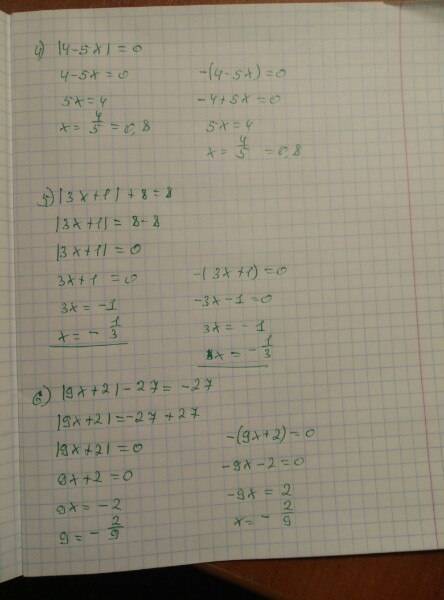 4) |4-5x| = 0
4-5x=0
-(4-5x)=0
5x=4
-4+5x=0
x= 4/5 =0,8
5x=4
x= 4/5 =0,8
5) |3x+1| + 8 = 8
|3x+1| = 8-8
|3x+1| = 0
3x+1 = 0
-(3x+1)=0
3x = -1
-3x-1=0
x = - 1/3
3x = -1
x = - 1/3
6) |9x+2| - 27 = -27
|9x+2| = -27 + 27
|9x+2| = 0
-(9x+2) = 0
9x+2 = 0
-9x-2=0
9x = -2
-9x = 2
9 = - 2/9
x = - 2/9